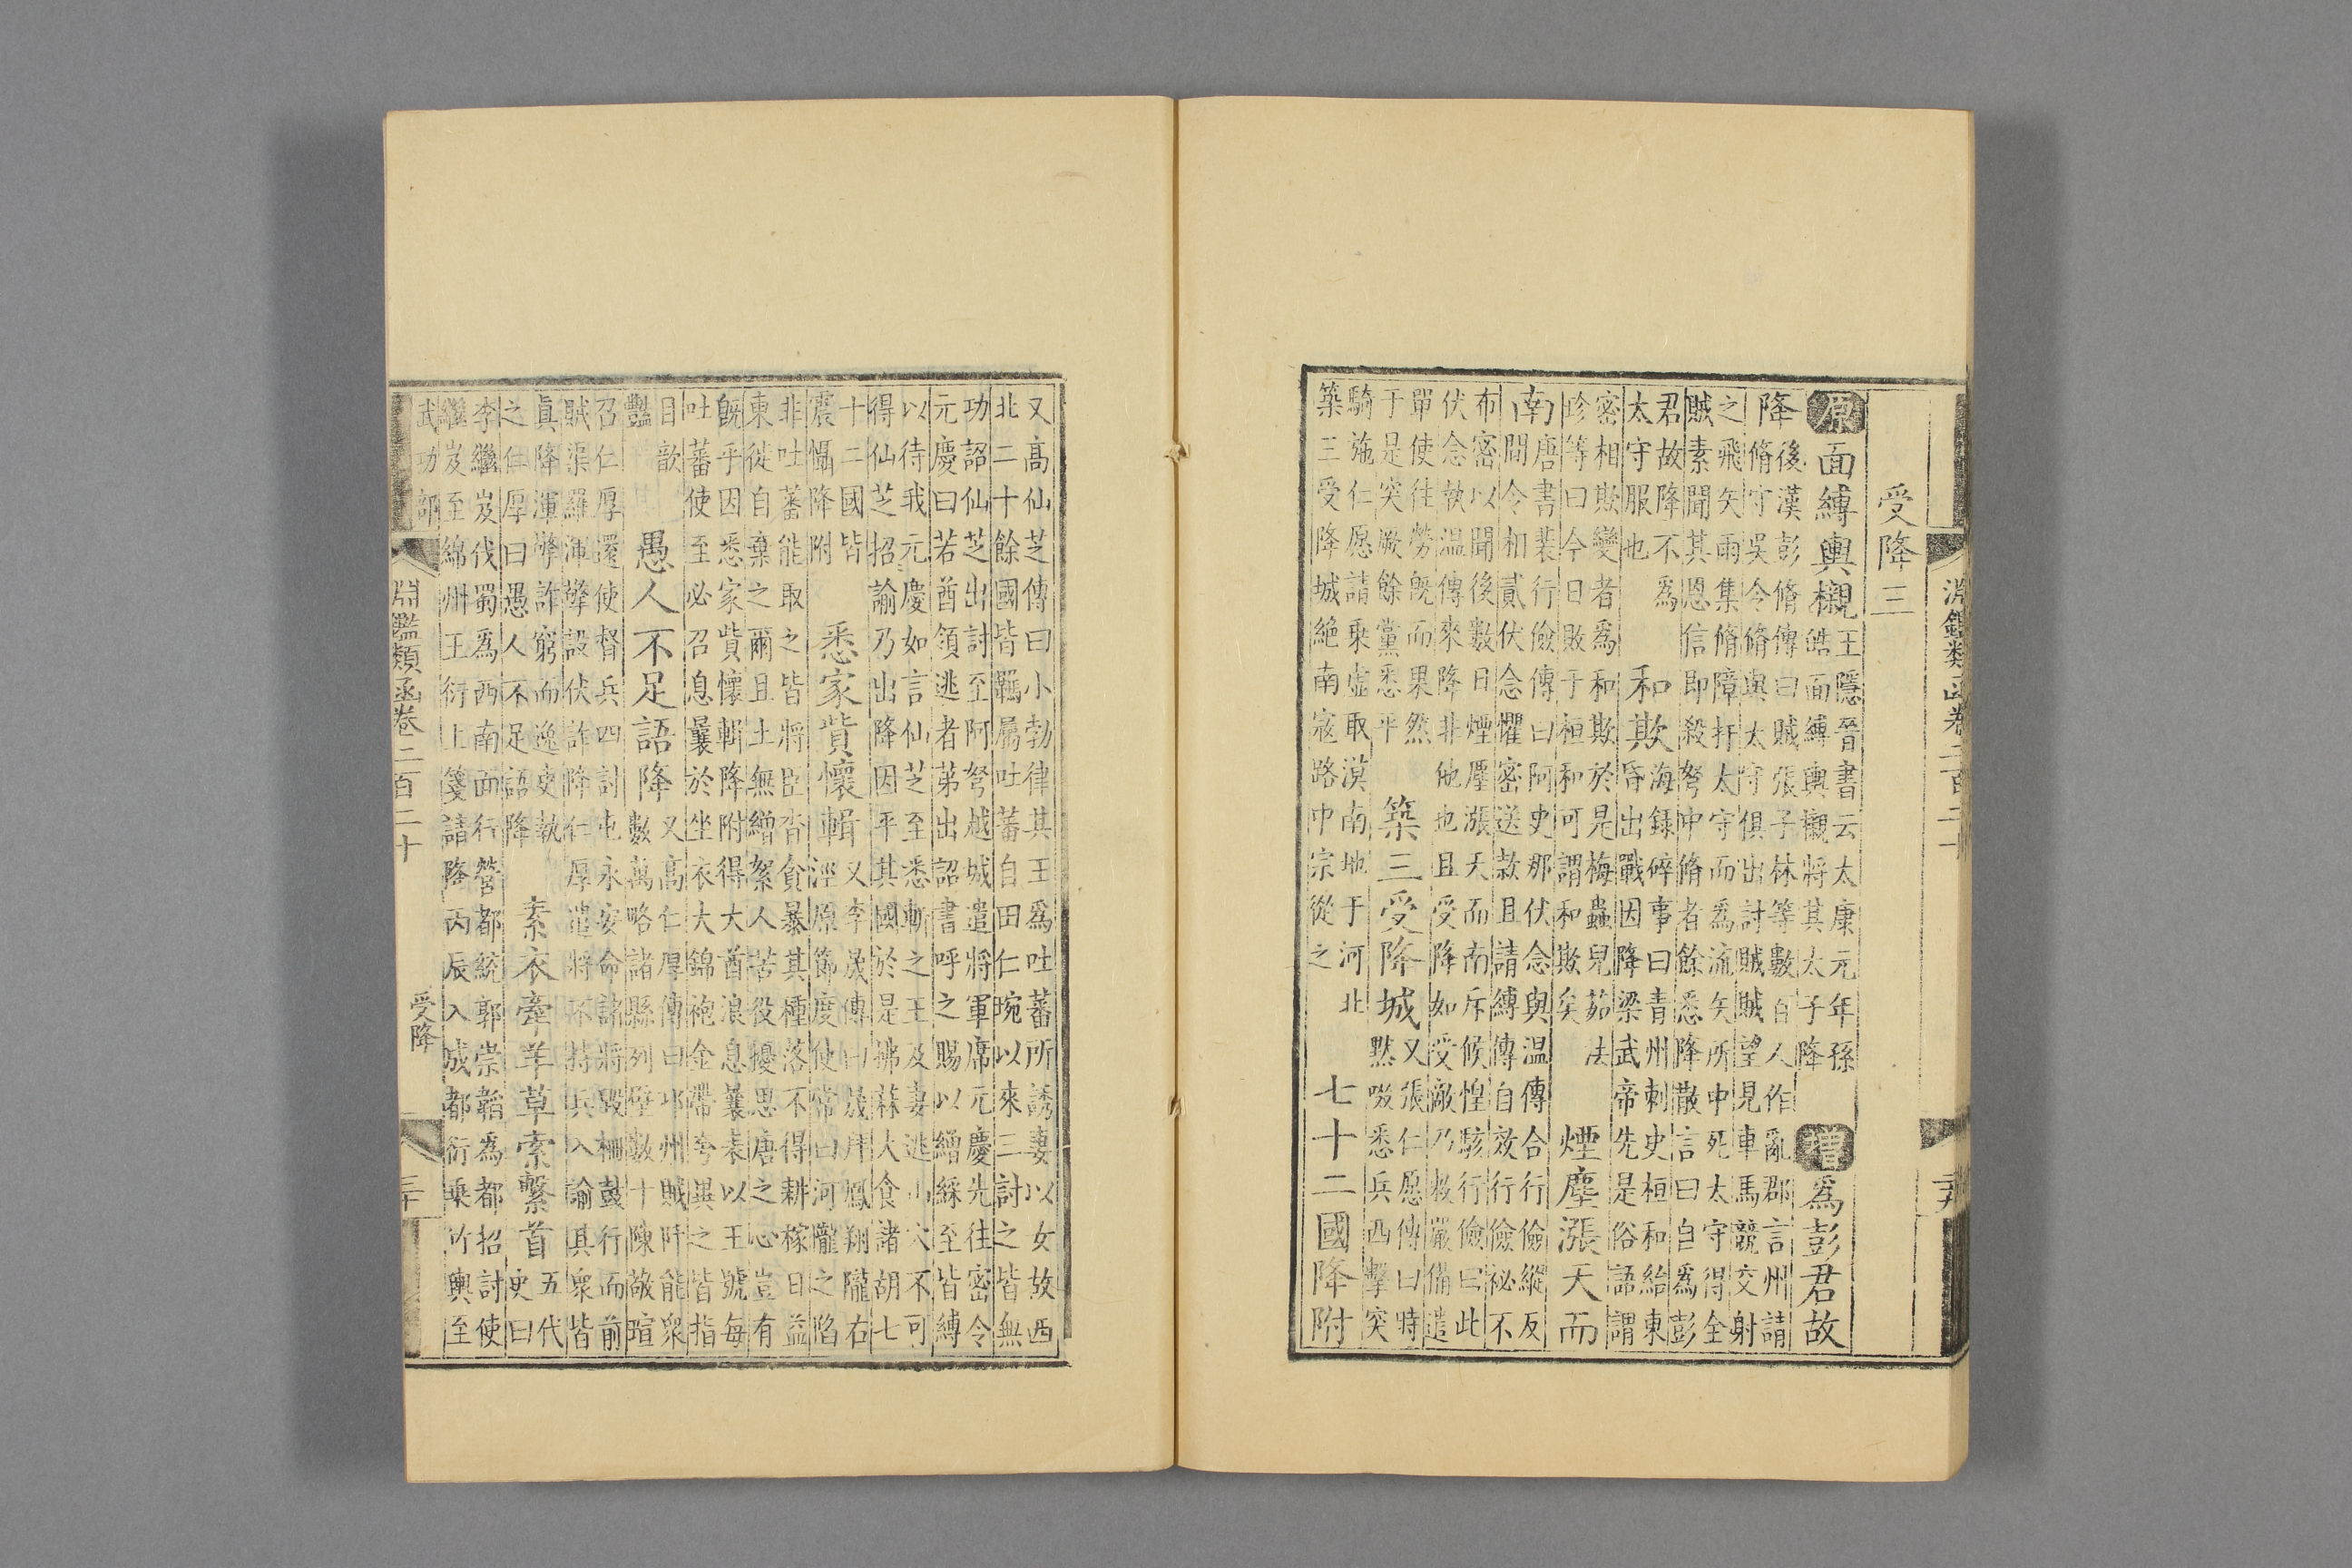 淵鑑類函卷二百二十
受降三
原面縛輿櫬王隱晉書云太康元年孫
皓面縛輿櫬將其太子降增爲彭君故
降後漢彭脩傳曰賊張子林等數百人作亂郡言州請
脩守吳令脩與太守俱出討賊賊望見車馬競交射
之飛矢雨集脩障扞太守而爲流矢所中死太守得全
賊素聞其恩信即殺弩中脩者餘悉降散言曰自爲彭
君故降不爲
太守服也
和欺海錄碎事曰青州刺史桓和紿東
昏出戰因降梁武帝先是俗語謂
密相欺變者爲和欺於是梅蟲兒茹法
珍等曰今日敗于桓和可謂和欺矣
煙塵漲天而
南唐書裴行儉傳曰阿史那伏念與温傅合行儉縱反
間令相貳伏念懼密送款且請縛傅自效行儉祕不
布密以聞後數日煙塵漲天而南斥候惶駭行儉曰此
伏念執温傅來降非他也且受降如受敵乃敕嚴備遣
單使往勞既而果然
于是突厥餘黨悉平
築三受降城又張仁愿傳曰時
默啜悉兵西擊突
騎施仁愿請乘虛取漠南地于河北
築三受降城絕南寇路中宗從之
七十二國降附
又高仙芝傳曰小勃律其王爲吐蕃所誘妻以女故西
北二十餘國皆羈屬吐蕃自田仁琬以來三討之皆無
功詔仙芝出討至阿弩越城遣將軍席元慶先往密令
元慶曰若酋領逃者第出詔書呼之賜以繒綵至皆縛
以待我元慶如言仙芝至悉斬之王及妻逃山穴不可
得仙芝招諭乃出降因平其國於是拂菻大食諸胡七
十二國皆
震懾降附
悉家貲懷輯又李晟傳曰晟拜鳳翔隴右
涇原節度使常曰河隴之陷
非吐蕃能取之皆將臣沓貪暴其種落不得耕稼日益
東徙自棄之爾且土無繒絮人苦役擾思唐之心豈有
既乎因悉家貲懷輯降附得大酋浪息曩表以王號每
吐蕃使至必召息曩於坐衣大錦袍金帶夸異之皆指
目歆
豔
愚人不足語降又高仁厚傳曰邛州賊阡能衆
數萬略諸縣列壁數十陳敬瑄
召仁厚還使督兵四討屯永安命諸將毀柵鼓行而前
賊渠羅渾擎設伏詐降仁厚遣將不持兵入諭其衆皆
眞降渾擎詐窮而逸吏執
之仁厚曰愚人不足語降
素衣牽羊草索繫首五代
史曰
李繼岌伐蜀爲西南面行營都統郭崇韜爲都招討使
繼岌至綿州王衍上箋請降丙辰入成都衍乘竹輿至
武功
淵鑑類函卷二百二十
受降
三十